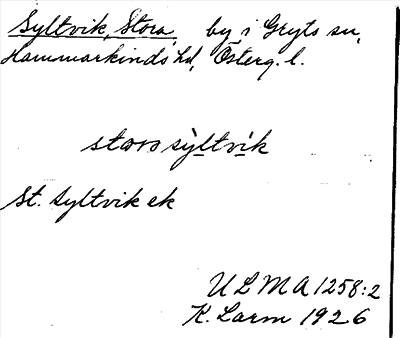 Syltvik, Stora, by i Gryts sn,
Hammarkinds hd, Österg. l.
stora sỳltvík
St. Syltvik ek
ULMA 1258:2
K. Larm 1926